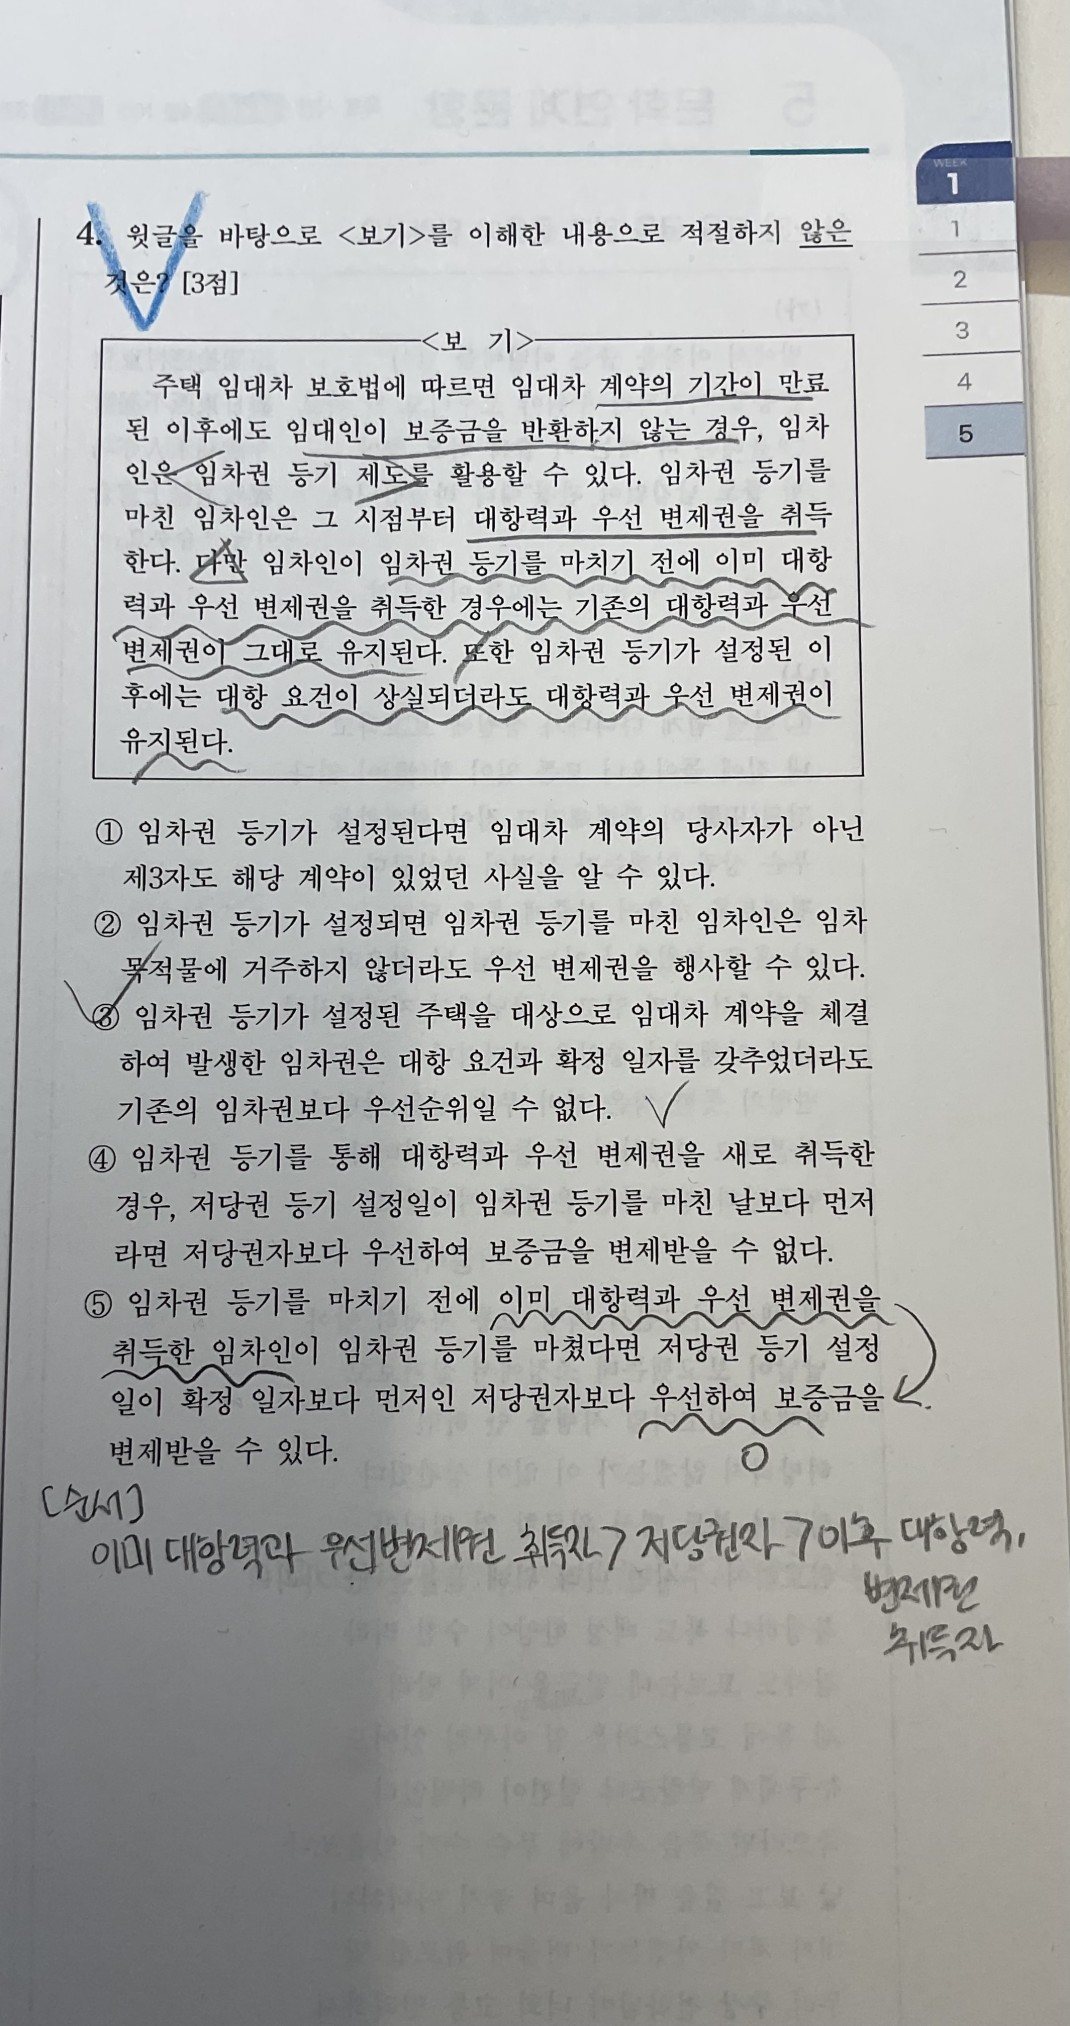 WEEK
1
1
2
3
4
5
4. 윗글을 바탕으로 <보기>를 이해한 내용으로 적절하지 않은
것은? [3점]
<보 기>
주택 임대차 보호법에 따르면 임대차 계약의 기간이 만료
된 이후에도 임대인이 보증금을 반환하지 않는 경우, 임차
인은 임차권 등기 제도를 활용할 수 있다. 임차권 등기를
마친 임차인은 그 시점부터 대항력과 우선 변제권을 취득
한다. 다만 임차인이 임차권 등기를 마치기 전에 이미 대항
력과 우선 변제권을 취득한 경우에는 기존의 대항력과 우선
변제권이 그대로 유지된다. 또한 임차권 등기가 설정된 이
후에는 대항 요건이 상실되더라도 대항력과 우선 변제권이
유지된다.
① 임차권 등기가 설정된다면 임대차 계약의 당사자가 아닌
제3자도 해당 계약이 있었던 사실을 알 수 있다.
② 임차권 등기가 설정되면 임차권 등기를 마친 임차인은 임차
목적물에 거주하지 않더라도 우선 변제권을 행사할 수 있다.
③ 임차권 등기가 설정된 주택을 대상으로 임대차 계약을 체결
하여 발생한 임차권은 대항 요건과 확정 일자를 갖추었더라도
기존의 임차권보다 우선순위일 수 없다.
④ 임차권 등기를 통해 대항력과 우선 변제권을 새로 취득한
경우, 저당권 등기 설정일이 임차권 등기를 마친 날보다 먼저
라면 저당권자보다 우선하여 보증금을 변제받을 수 없다.
⑤ 임차권 등기를 마치기 전에 이미 대항력과 우선 변제권을
취득한 임차인이 임차권 등기를 마쳤다면 저당권 등기 설정
일이 확정 일자보다 먼저인 저당권자보다 우선하여 보증금을
변제받을 수 있다.
[순서]
이미 대항력과 우선변제권 취득자 > 저당권자 > 이후 대항력,
변제권
취득자